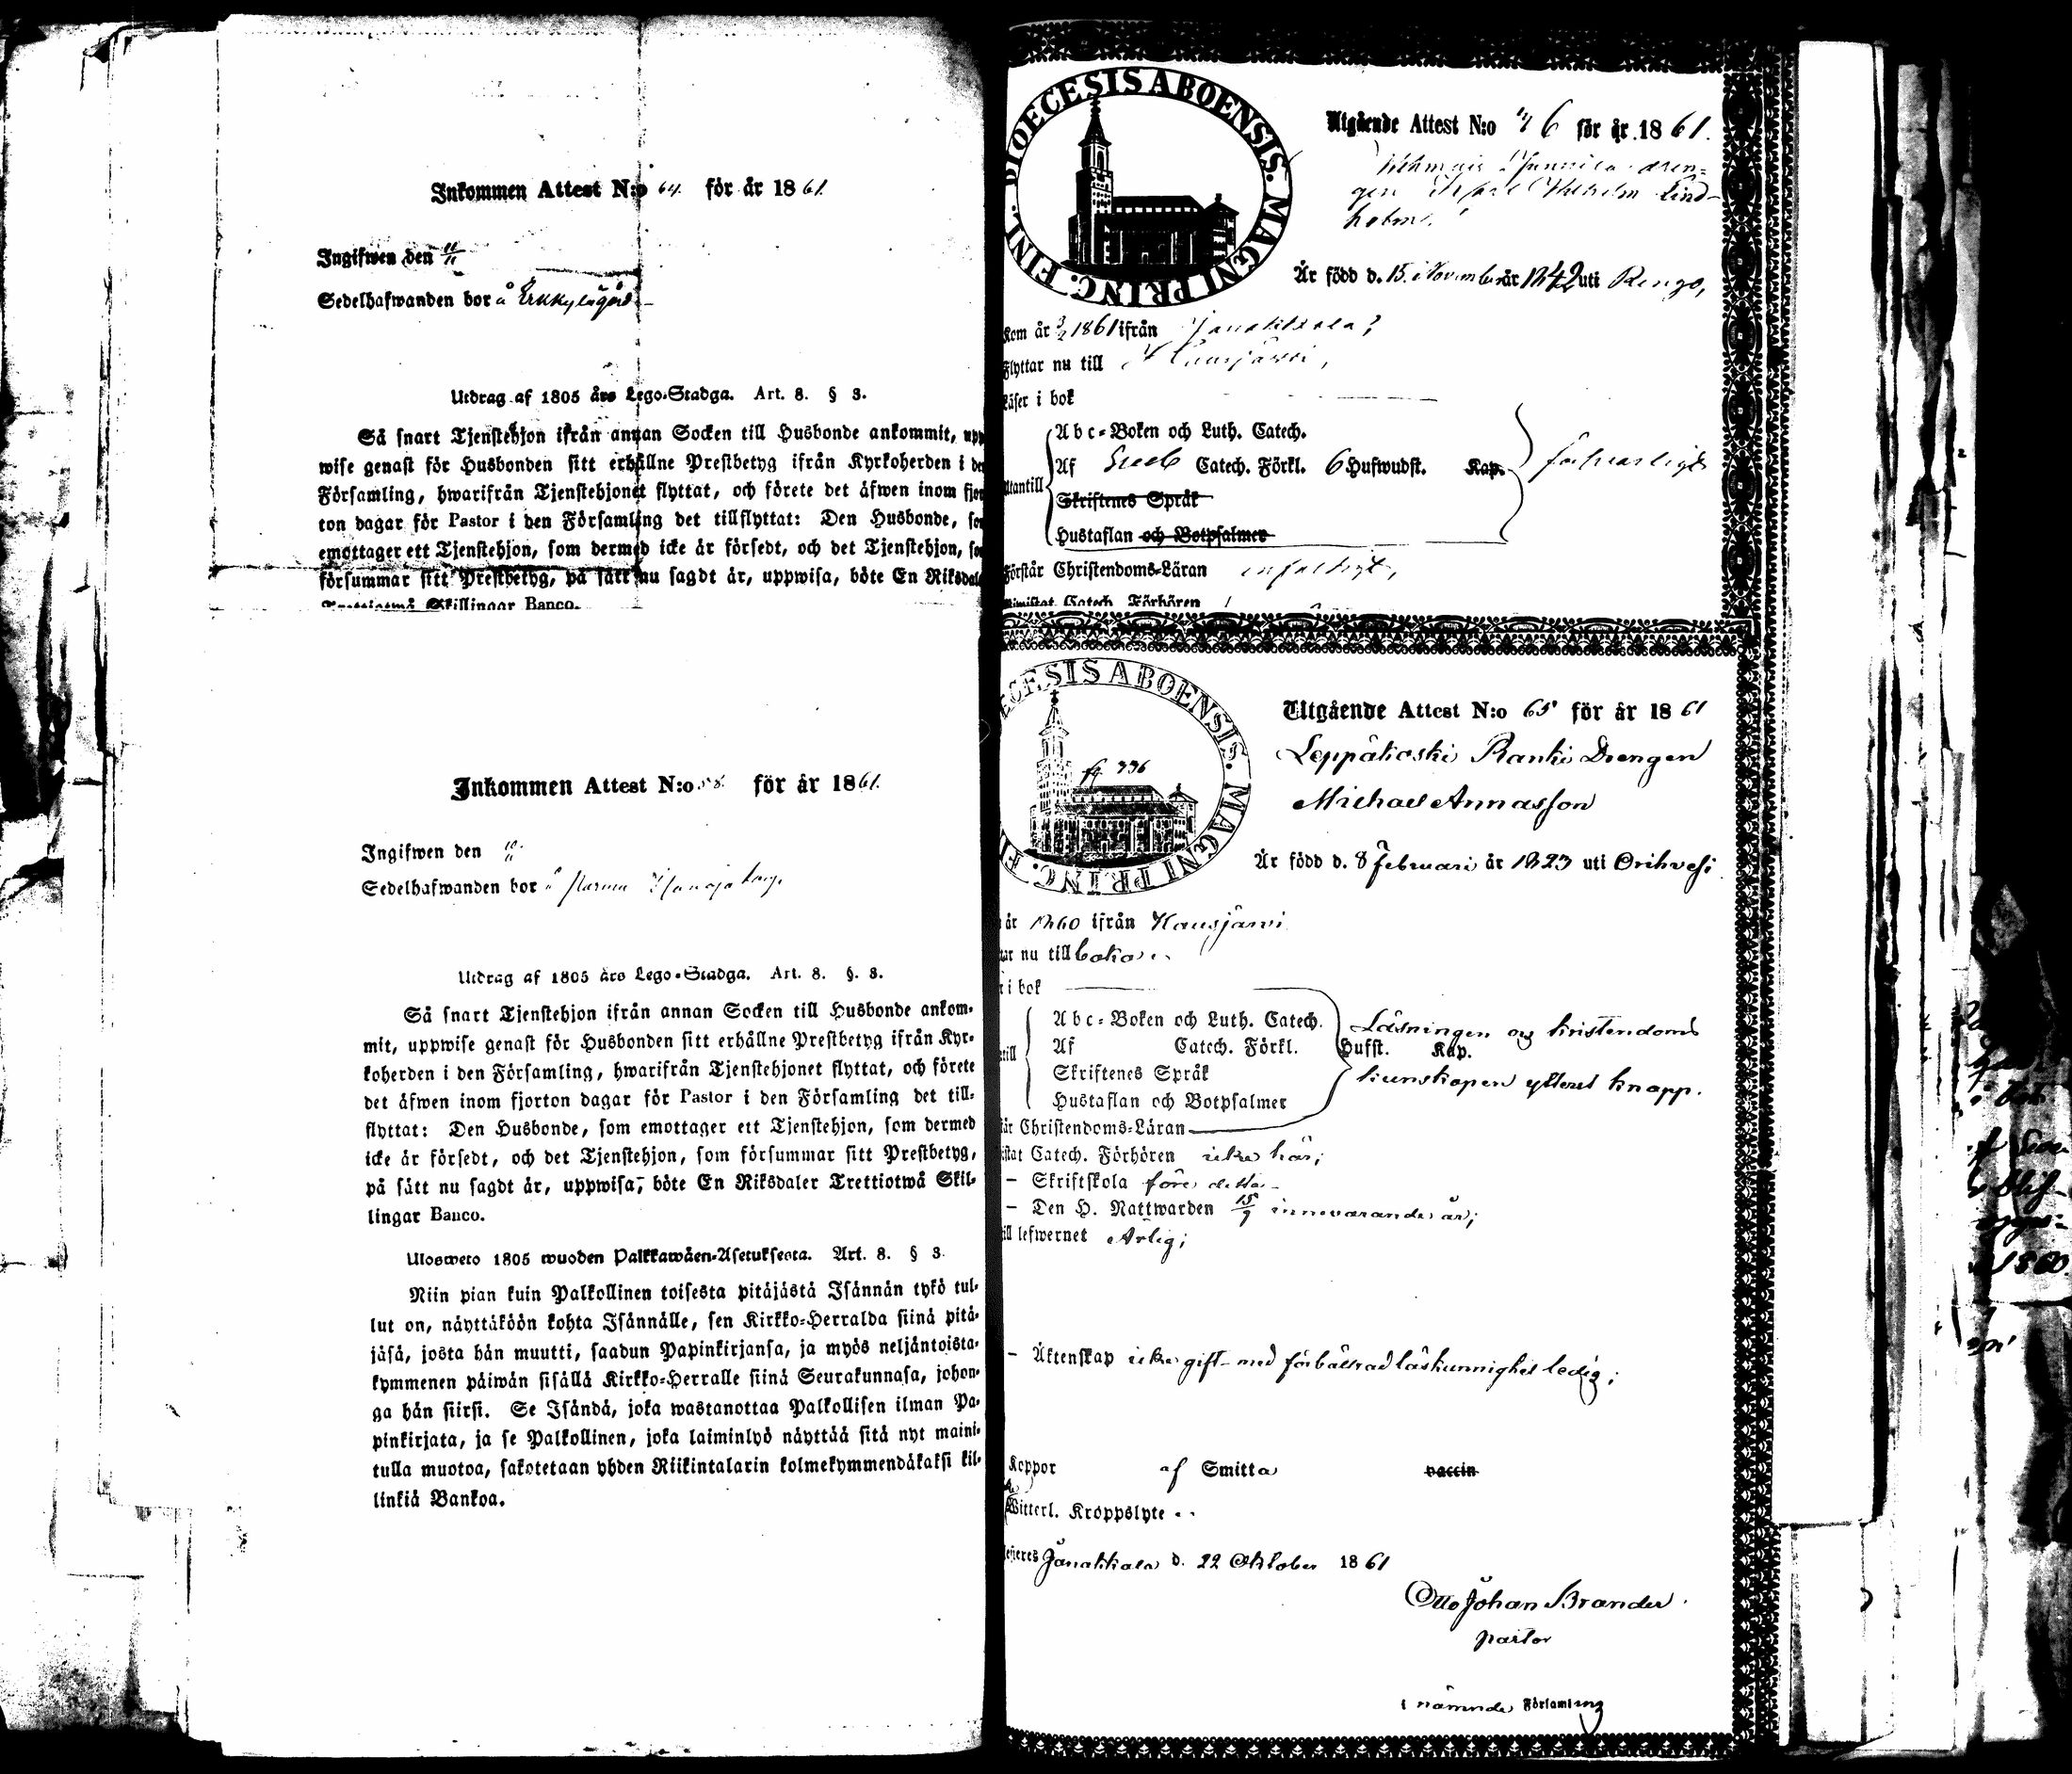 Inkommen Attest N:o 64. för år 1861.
Ingifwen den 11/11
Sedelhafwanden bor å Erkkylägård
Utdrag af 1805 års Lego-Stadga. Art. 8. § 3.
Så snart Tjenstehjon ifrån annan Socken till Husbonde ankommit, upp
wise genast för Husbonden sitt erhållne Prestbetyg ifrån Kyrkoherden i de
Församling, hwarifrån Tjenstehjonet flyttat, och förete det äfwen inom fjor
ton dagar för Pastor i den Församling det tillflyttat: Den Husbonde, so
emottager ett Tjenstehjon, som dermed icke är försedt, och det Tjenstehjon, so
försummar sitt Prestbetyg, på sätt nu sagdt är, uppwisa, böte En Riksdal
Trettiotwå Skillingar Banco.
Inkommen Attest N:o 58. för år 1861.
Ingifwen den 10/11
Sedelhafwanden bor å
Utdrag af 1805 års Lego-Stadga. Art. 8. §. 3.
Så snart Tjenstehjon ifrån annan Socken till Husbonde ankom-
mit, uppwise genast för Husbonden sitt erhållne Prestbetyg ifrån Kyr-
koherden i den Församling, hwarifrån Tjenstehjonet flyttat, och förete
det äfwen inom fjorton dagar för Pastor i den Församling det till-
flyttat: Den Husbonde, som emottager ett Tjenstehjon, som dermed
icke är försedt, och det Tjenstehjon, som försummar sitt Prestbetyg,
på sätt nu sagdt är, uppwisa, böte En Riksdaler Trettiotwå Skil-
lingar Banco.
Ulosweto 1805 wuoden Palkkawäen-Asetuksesta. Art. 8. § 3.
Niin pian kuin Palkollinen toisesta pitäjästä Isännän tykö tul-
lut on, näyttäköön kohta Isännälle, sen Kirkko-Herralda siinä pitä-
jäsä, josta hän muutti, saadun Papinkirjansa, ja myös neljäntoista-
kymmenen päiwän sisällä Kirkko-Herralle siinä Seurakunnasa, johon-
ga hän siirsi. Se Isändä, joka wastanottaa Palkollisen ilman Pa-
pinkirjata, ja se Palkollinen, joka laiminlyö näyttää sitä nyt maini-
tulla muotoa, sakotetaan yhden Riikintalarin kolmekymmendäkaksi kil-
linkiä Bankoa.
DIOECESIS ABOENSIS. MAGNI PRINC. FINL.
Utgående Attest N:o 76 för år 1861.
drän-
gen Wilhelm Lind-
holm.
Är född d. 15 November år 1842 uti Rengo,
Kom år 1861 ifrån Janakkala;
Flyttar nu till Hausjärvi,
Läser i bok
Abc-Boken och Luth. Catech.
Utantill Af Catech. Förkl. 6 Hufwudst. Kap. försvarligt
Skriftenes Språk
Hustaflan och Botpsalmer
Förstår Christendoms-Läran enfaldigt,
Bimistat Catech. Förhören
ECESIS ABOENSIS. MAGNI PRINC. FI
fg 336
Utgående Attest N:o 65 för år 1861
Leppäkoski Ranki Drengen
Michael Annasson
Är född d. 8 Februari år 1823 uti Orihvesi
år 1860 ifrån Hausjärvi
ar nu till baka
i bok
Abc-Boken och Luth. Catech. Läsningen og kristendoms
till Af Catech. Förkl. Hufst. Kap.
Skriftenes Språk kunskapen ytterst knapp.
Hustaflan och Botpsalmer
tår Christendoms-Läran
istat Catech. Förhören icke här;
– Skriftskola före detta
– Den H. Nattwarden 15/9 innevarande år;
ill lefwernet Ärlig;
– Äktenskap icke gift – med förbättrad läskunnighet ledig;
Koppor af Smitta vaccin
Witterl. Kroppslyte
Janakkala d. 22 Oktober 1861
Otto Johan Brander.
pastor
i nämnde Församling
1860.